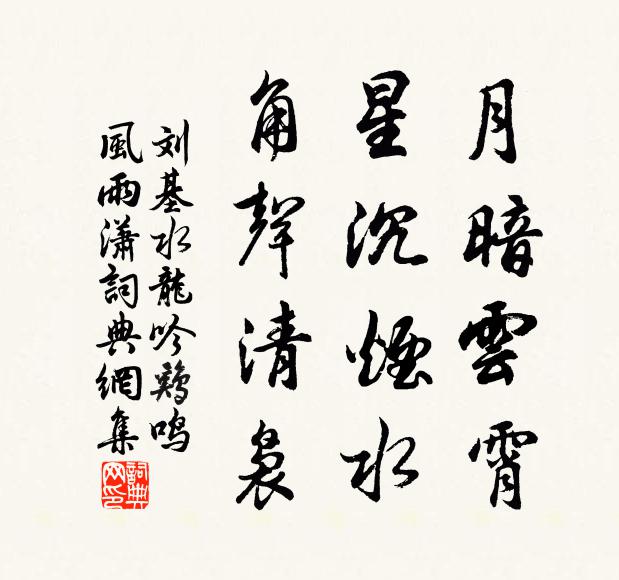 月暗雲霄
星沉煙水
角聲清裊
刘基水龍吟鷄鳴
風雨潇詞典網集
詞典网印